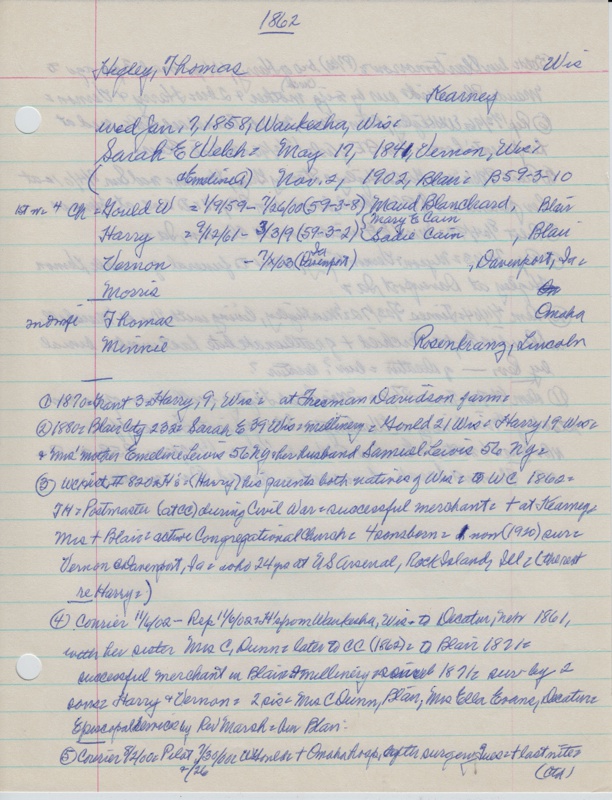 1862
Hegley, Thomas Wis
Kearney
wed Jan. 7, 1858, Waukesha, Wis=
Sarah E Welch = May 17, 1841, Vernon, Wis=
(Emeline) Nov. 2, 1902, Blair = B59-3-10
1st m 4 Ch = Gould W = 1/9/59 - 7/26/00 (59-3-8) Maud Blanchard, Blair
Harry = 9/12/61 - 3/3/9 (59-3-2) { Mary E Cain Sadie Cain , Blair
Vernon - (Davenport) Ia , Davenport, Ia =
Morris
2nd wife Thomas Omaha
Minnie Rosenkranz, Lincoln
① 1870 = Grant 3 = Harry, 9, Wis = at Freeman Davidson farm =
② 1880 = Blair City 232 = Sarah E 39 Wis = millinery = Gould 21 Wis = Harry 19 Wis =
+ Mrs' mother Emeline Lewis 56 Ny = her husband Samuel Lewis 56 Ny =
③ WC Hist # 820 = H's = (Harry) his parents both natives of Wis = to WC 1862 =
TH = Postmaster (at CC) during Civil War = successful merchant = + at Kearney =
Mrs + Blair = active Congregational Church = 4 sons born = now (1920) sur =
Vernon @ Davenport, Ia = who 24 yrs at US Arsenal, Rock Island, Ill = (the rest
re Harry =)
④ Courier 11/6/02 - Rep 11/6/02 = H's from Waukesha, Wis = to Decatur, Nebr 1861,
with her sister Mrs C, Dunn = later to CC (1862) = to Blair 1871 =
successful merchant in Blair = millinery = since 1871 = surv by 2
sons = Harry + Vernon = 2 sis = Mrs C Dunn, Blair, Mrs Ella Evans, Decatur =
Episcopal services by Rev Marsh = bur Blair =
⑤ Courier 8/2/00 = Pilot 7/30/00 = Gould + Omaha hosp, after surgery = + last rites
7/26 (Ctd)